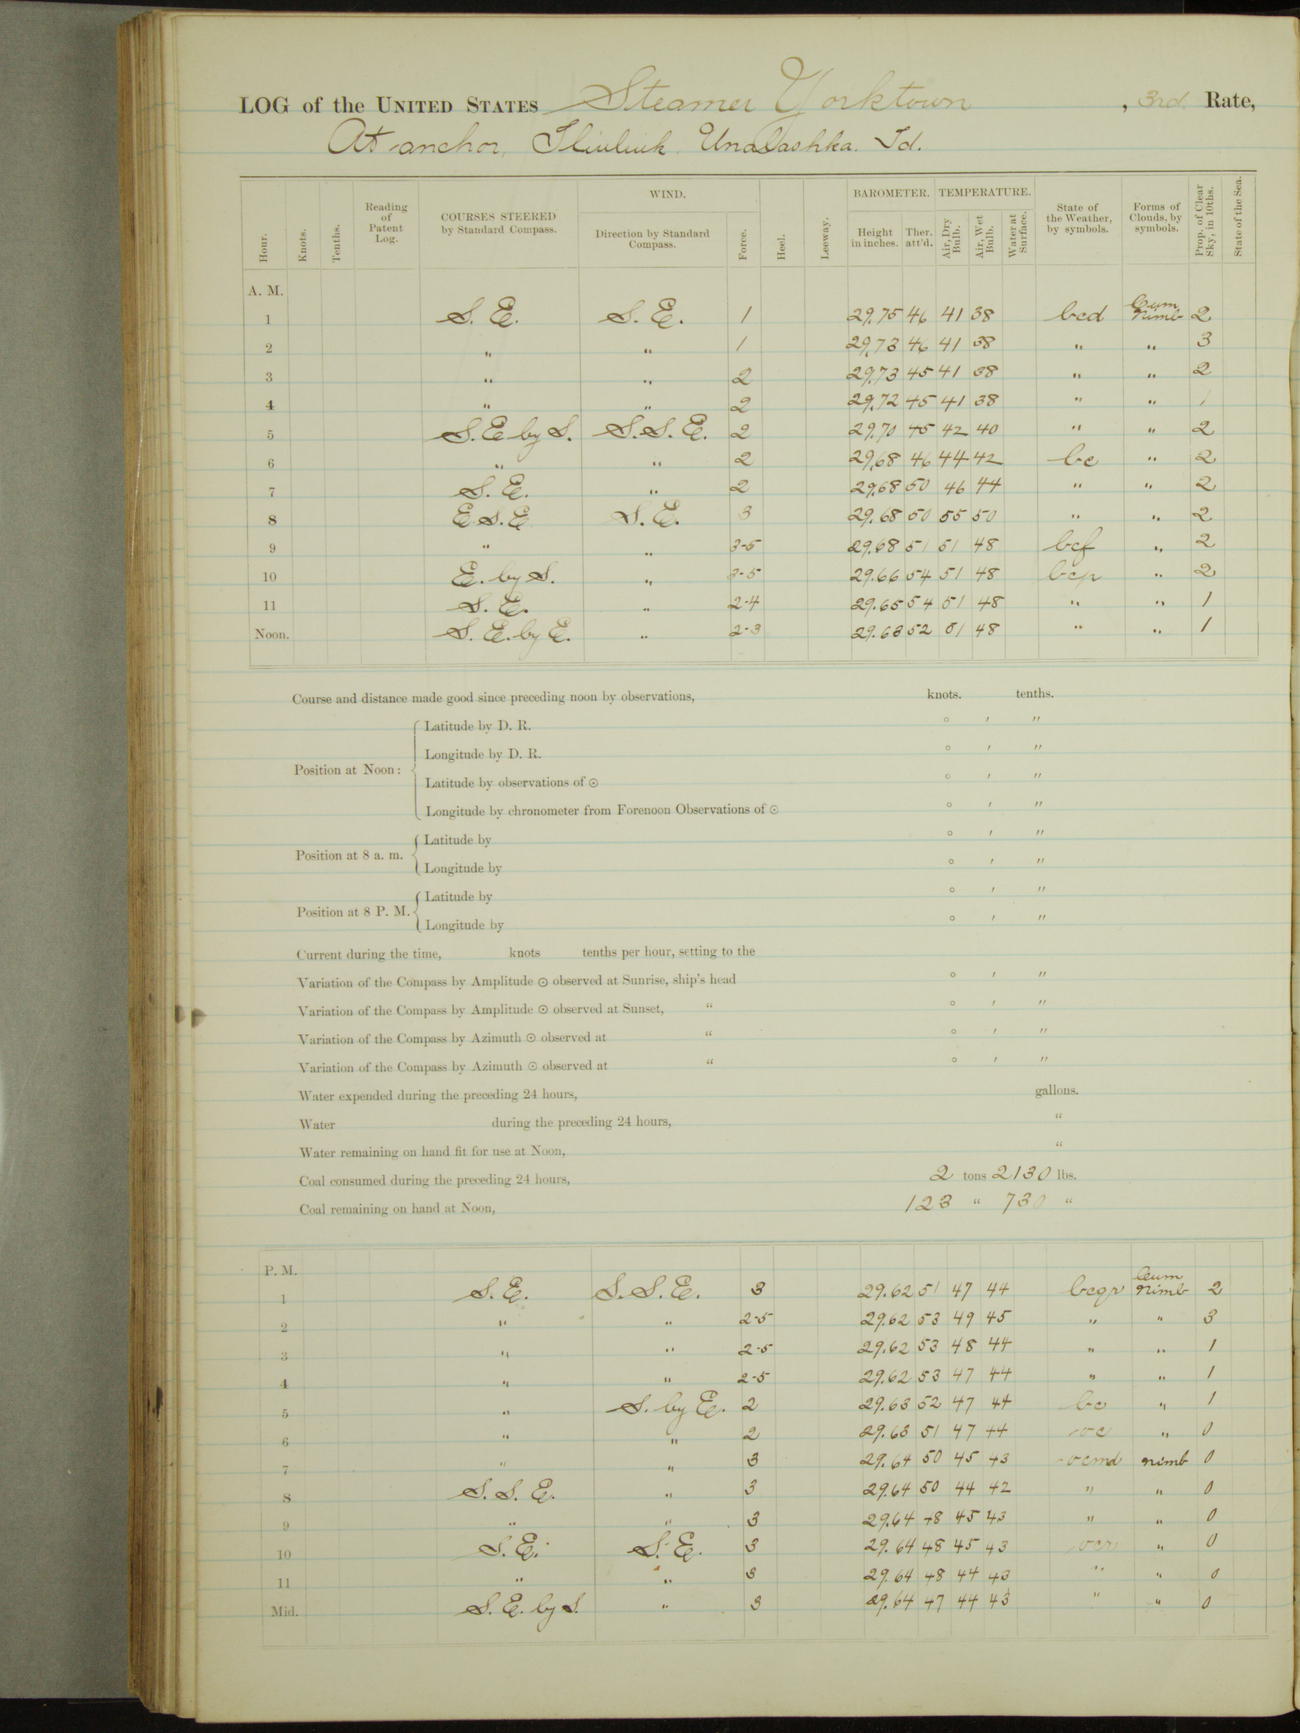 LOG of the UNITED STATES Steamer Yorktown, 3rd. Rate,
At anchor, Iliuliuk. Unalashka. Id.
WIND. BAROMETER. TEMPERATURE.
Hour. Knots. Tenths. Reading of Patent Log. COURSES STEERED by Standard Compass. Direction by Standard Compass. Force. Heel. Leeway. Height in inches. Ther. att'd. Air, Dry Bulb. Air, Wet Bulb. Water at Surface. State of the Weather, by symbols. Forms of Clouds, by symbols. Prop. of Clear Sky, in 10ths. State of the Sea.
A. M.
1 S. E. S. E. 1 29.75 46 41 38 bcd Cum Nimb 2
2 " " 1 29.73 46 41 38 " " 3
3 " " 2 29.73 45 41 38 " " 2
4 " " 2 29.72 45 41 38 " " 1
5 S. E by S. S. S. E. 2 29.70 45 42 40 " " 2
6 " " 2 29.68 46 44 42 bc " 2
7 S. E. " 2 29.68 50 46 44 " " 2
8 E S. E S. E. 3 29.68 50 55 50 " " 2
9 " " 3-5 29.68 51 51 48 bcf " 2
10 E. by S. " 3-5 29.66 54 51 48 bcp " 2
11 S. E. " 2-4 29.65 54 51 48 " " 1
Noon. S. E. by E. " 2-3 29.63 52 51 48 " " 1
Course and distance made good since preceding noon by observations, knots. tenths.
Position at Noon: Latitude by D. R. ° ′ ″
Longitude by D. R. ° ′ ″
Latitude by observations of ☉ ° ′ ″
Longitude by chronometer from Forenoon Observations of ☉ ° ′ ″
Position at 8 a. m. Latitude by ° ′ ″
Longitude by ° ′ ″
Position at 8 P. M. Latitude by ° ′ ″
Longitude by ° ′ ″
Current during the time, knots tenths per hour, setting to the
Variation of the Compass by Amplitude ☉ observed at Sunrise, ship's head ° ′ ″
Variation of the Compass by Amplitude ☉ observed at Sunset, " ° ′ ″
Variation of the Compass by Azimuth ☉ observed at " ° ′ ″
Variation of the Compass by Azimuth ☉ observed at " ° ′ ″
Water expended during the preceding 24 hours, gallons.
Water during the preceding 24 hours, "
Water remaining on hand fit for use at Noon, "
Coal consumed during the preceding 24 hours, 2 tons 2130 lbs.
Coal remaining on hand at Noon, 123 " 730 "
P. M.
1 S. E. S. S. E. 3 29.62 51 47 44 bcqr Cum Nimb 2
2 " " 2-5 29.62 53 49 45 " " 3
3 " " 2-5 29.62 53 48 44 " " 1
4 " " 2-5 29.62 53 47 44 " " 1
5 " S. by E. 2 29.63 52 47 44 bc " 1
6 " " 2 29.63 51 47 44 oc " 0
7 " " 3 29.64 50 45 43 ocmd nimb 0
8 S. S. E. " 3 29.64 50 44 42 " " 0
9 " " 3 29.64 48 45 43 " " 0
10 S. E. S. E. 3 29.64 48 45 43 ocr " 0
11 " " 3 29.64 48 44 43 " " 0
Mid. S. E. by S. " 3 29.64 47 44 43 " " 0